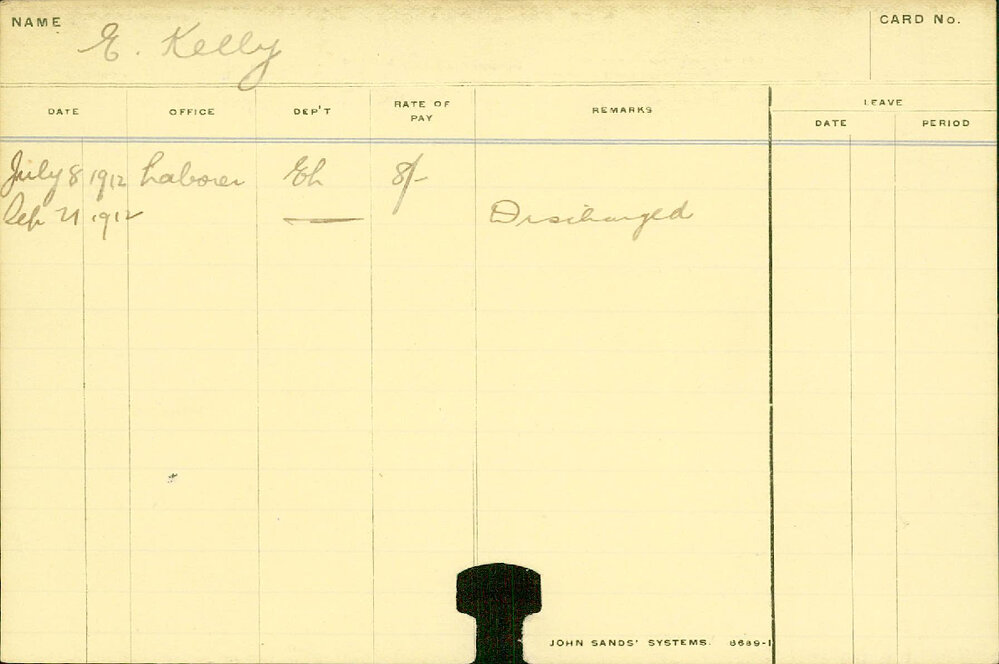 NAME E. Kelly CARD No.
DATE OFFICE DEP'T RATE OF PAY REMARKS LEAVE
DATE PERIOD
July 8 1912 Laborer Eh 8/-
Sep 21 1912 — Discharged
JOHN SANDS' SYSTEMS. 8689-1